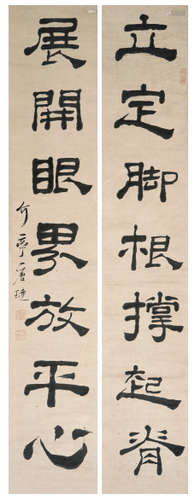 立定脚根撑起脊
展開眼界放平心